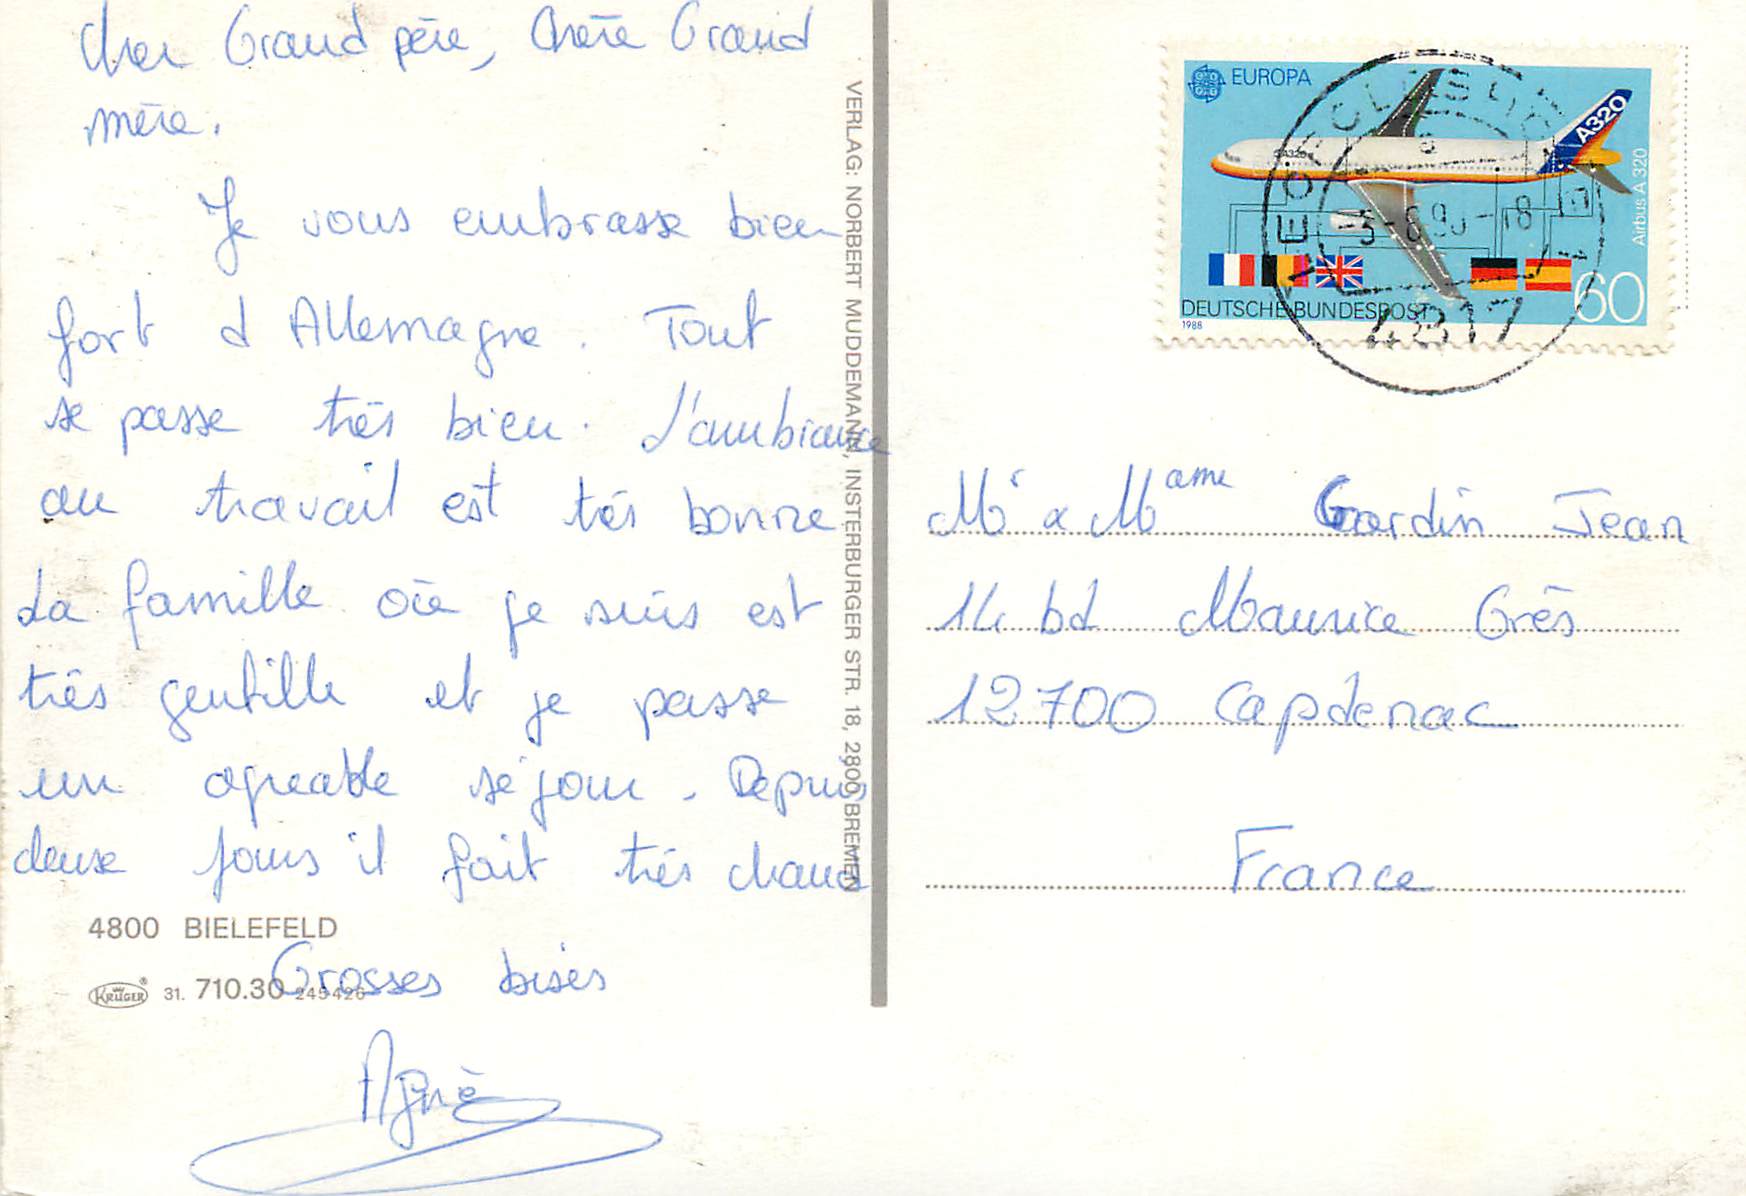 Cher Grand père, Chère Grand
mère.
Je vous embrasse bien
fort d Allemagne. Tout
se passe très bien. L'ambiance
au travail est très bonne
La famille où je suis est
très gentille et je passe
un agreable séjour. Depuis
deux jours il fait très chaud
4800 BIELEFELD
Grosses bises
KRÜGER® 31. 710.30 245426
Agnès
VERLAG: NORBERT MUDDEMANN, INSTERBURGER STR. 18, 2800 BREMEN
EUROPA
A320
A320
Airbus A 320
DEUTSCHE BUNDESPOST
60
1988
4817
Mr & Mame Gardin Jean
14 bd Maurice Grès
12700 Capdenac
France